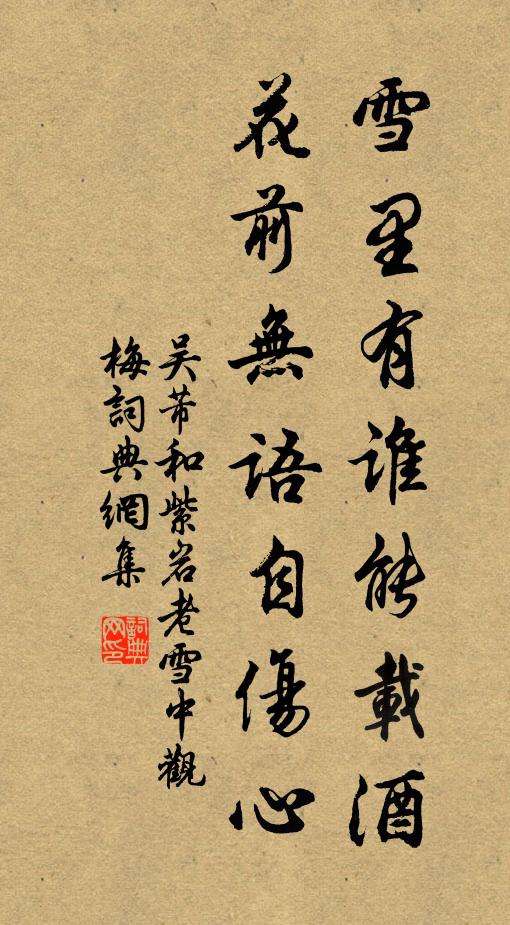 雪里有谁能載酒
花前無語自傷心
吴芾和紫岩老雪中觀
梅詞典網集
詞典网印